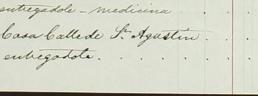 entregadole - medicina
Casa Calle de Sn. Agustin . .
entregadole . . . . . .